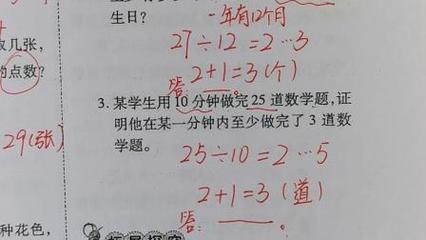 生日？ 一年有12个月
27÷12=2…3
答：2+1=3(个)
几张，
的点数？
3. 某学生用10分钟做完25道数学题，证
明他在某一分钟内至少做完了 3 道数
学题。
29(张)
25÷10=2…5
2+1=3（道）
答：______。
种花色，